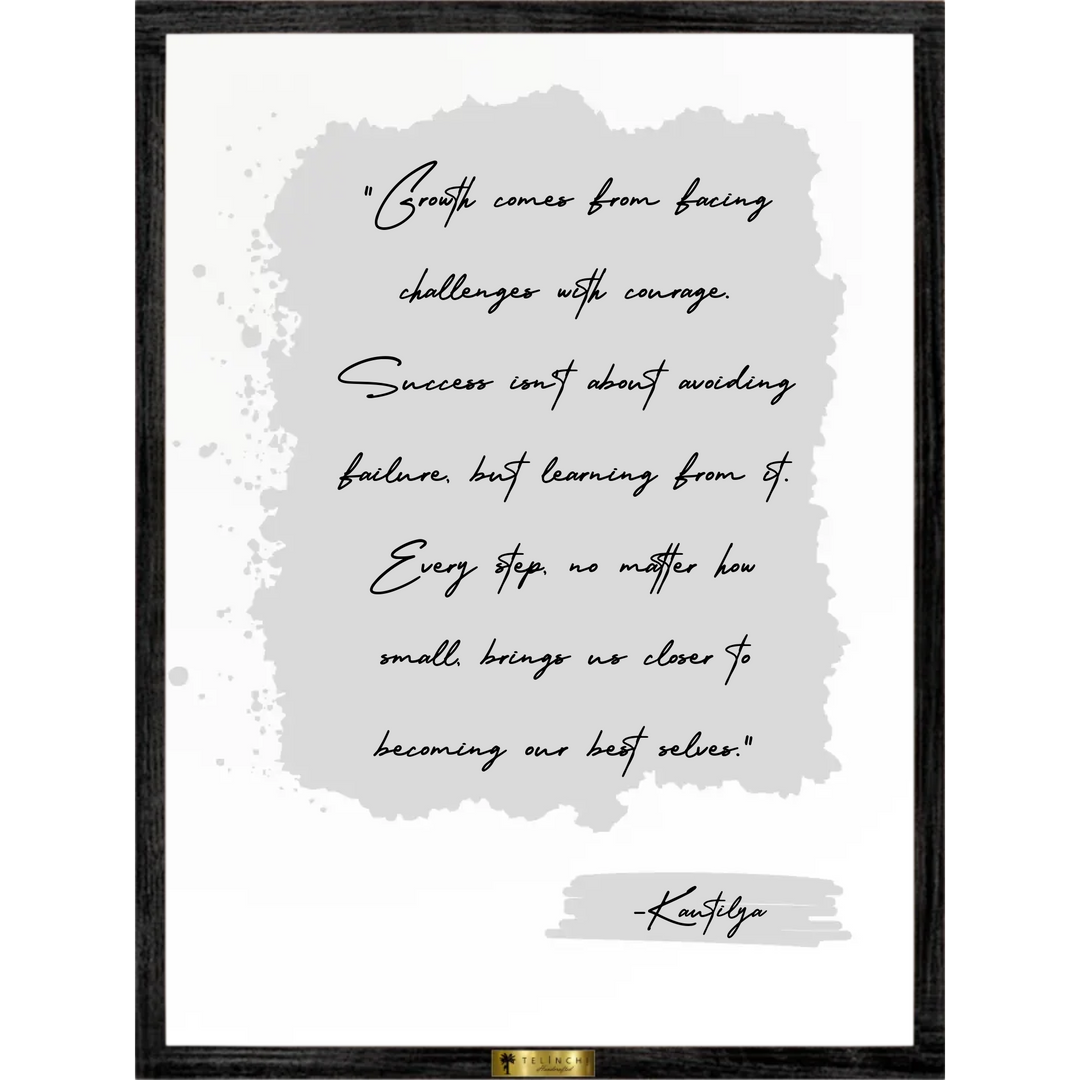 "Growth comes from facing
challenges with courage.
Success isn't about avoiding
failure, but learning from it.
Every step, no matter how
small, brings us closer to
becoming our best selves."
-Kautilya
TELINCHI
Handcrafted